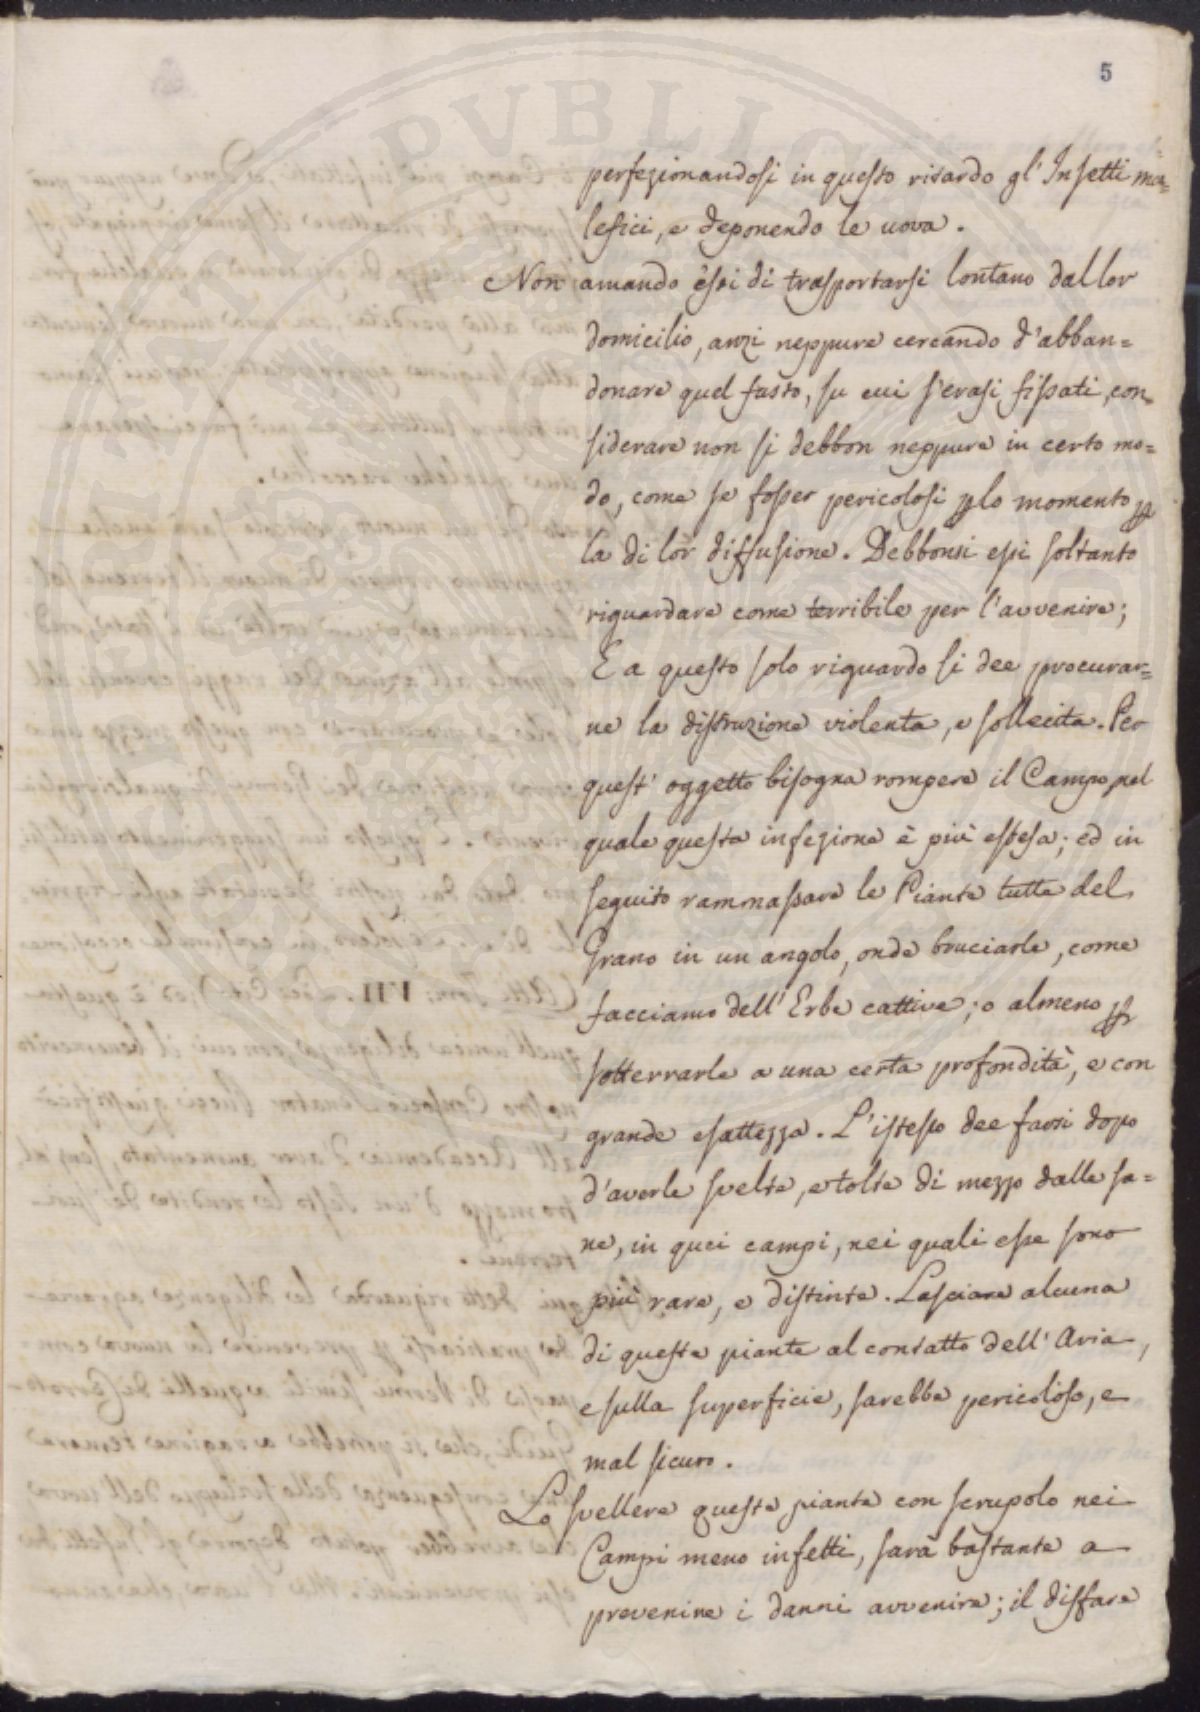 5
perfezionandosi in questo ritardo gl'Insetti ma=
lefici, e deponendo le uova.
Non amando essi di trasportarsi lontano dal lor
domicilio, anzi neppure cercando d'abban=
donare quel fusto, su cui s'erasi fissati, con
siderare non si debbon neppure in certo mo=
do, come se fosser pericolosi plo momento p
la di lor diffusione. Debbonsi essi soltanto
riguardare come terribile per l'avvenire;
E a questo solo riguardo si dee procurar=
ne la distruzione violenta, e sollecita. Per
quest'oggetto bisogna rompere il Campo, nel
quale questa infezione è più estesa; ed in
seguito rammassare le Piante tutte del
Grano in un angolo, onde bruciarle, come
facciamo dell'Erbe cattive; o almeno p
sotterrarle a una certa profondità, e con
grande esattezza. L'istesso dee farsi dopo
d'averle svelte, e tolte di mezzo dalle sa=
ne, in quei campi, nei quali esse sono
più rare, e distinte. Lasciare alcuna
di queste piante al contatto dell'Aria,
e sulla superficie, sarebbe pericoloso, e
mal sicuro.
Lo svellere queste piante con scrupolo nei
Campi meno infetti, sarà bastante a
prevenire i danni avvenire; il disfare